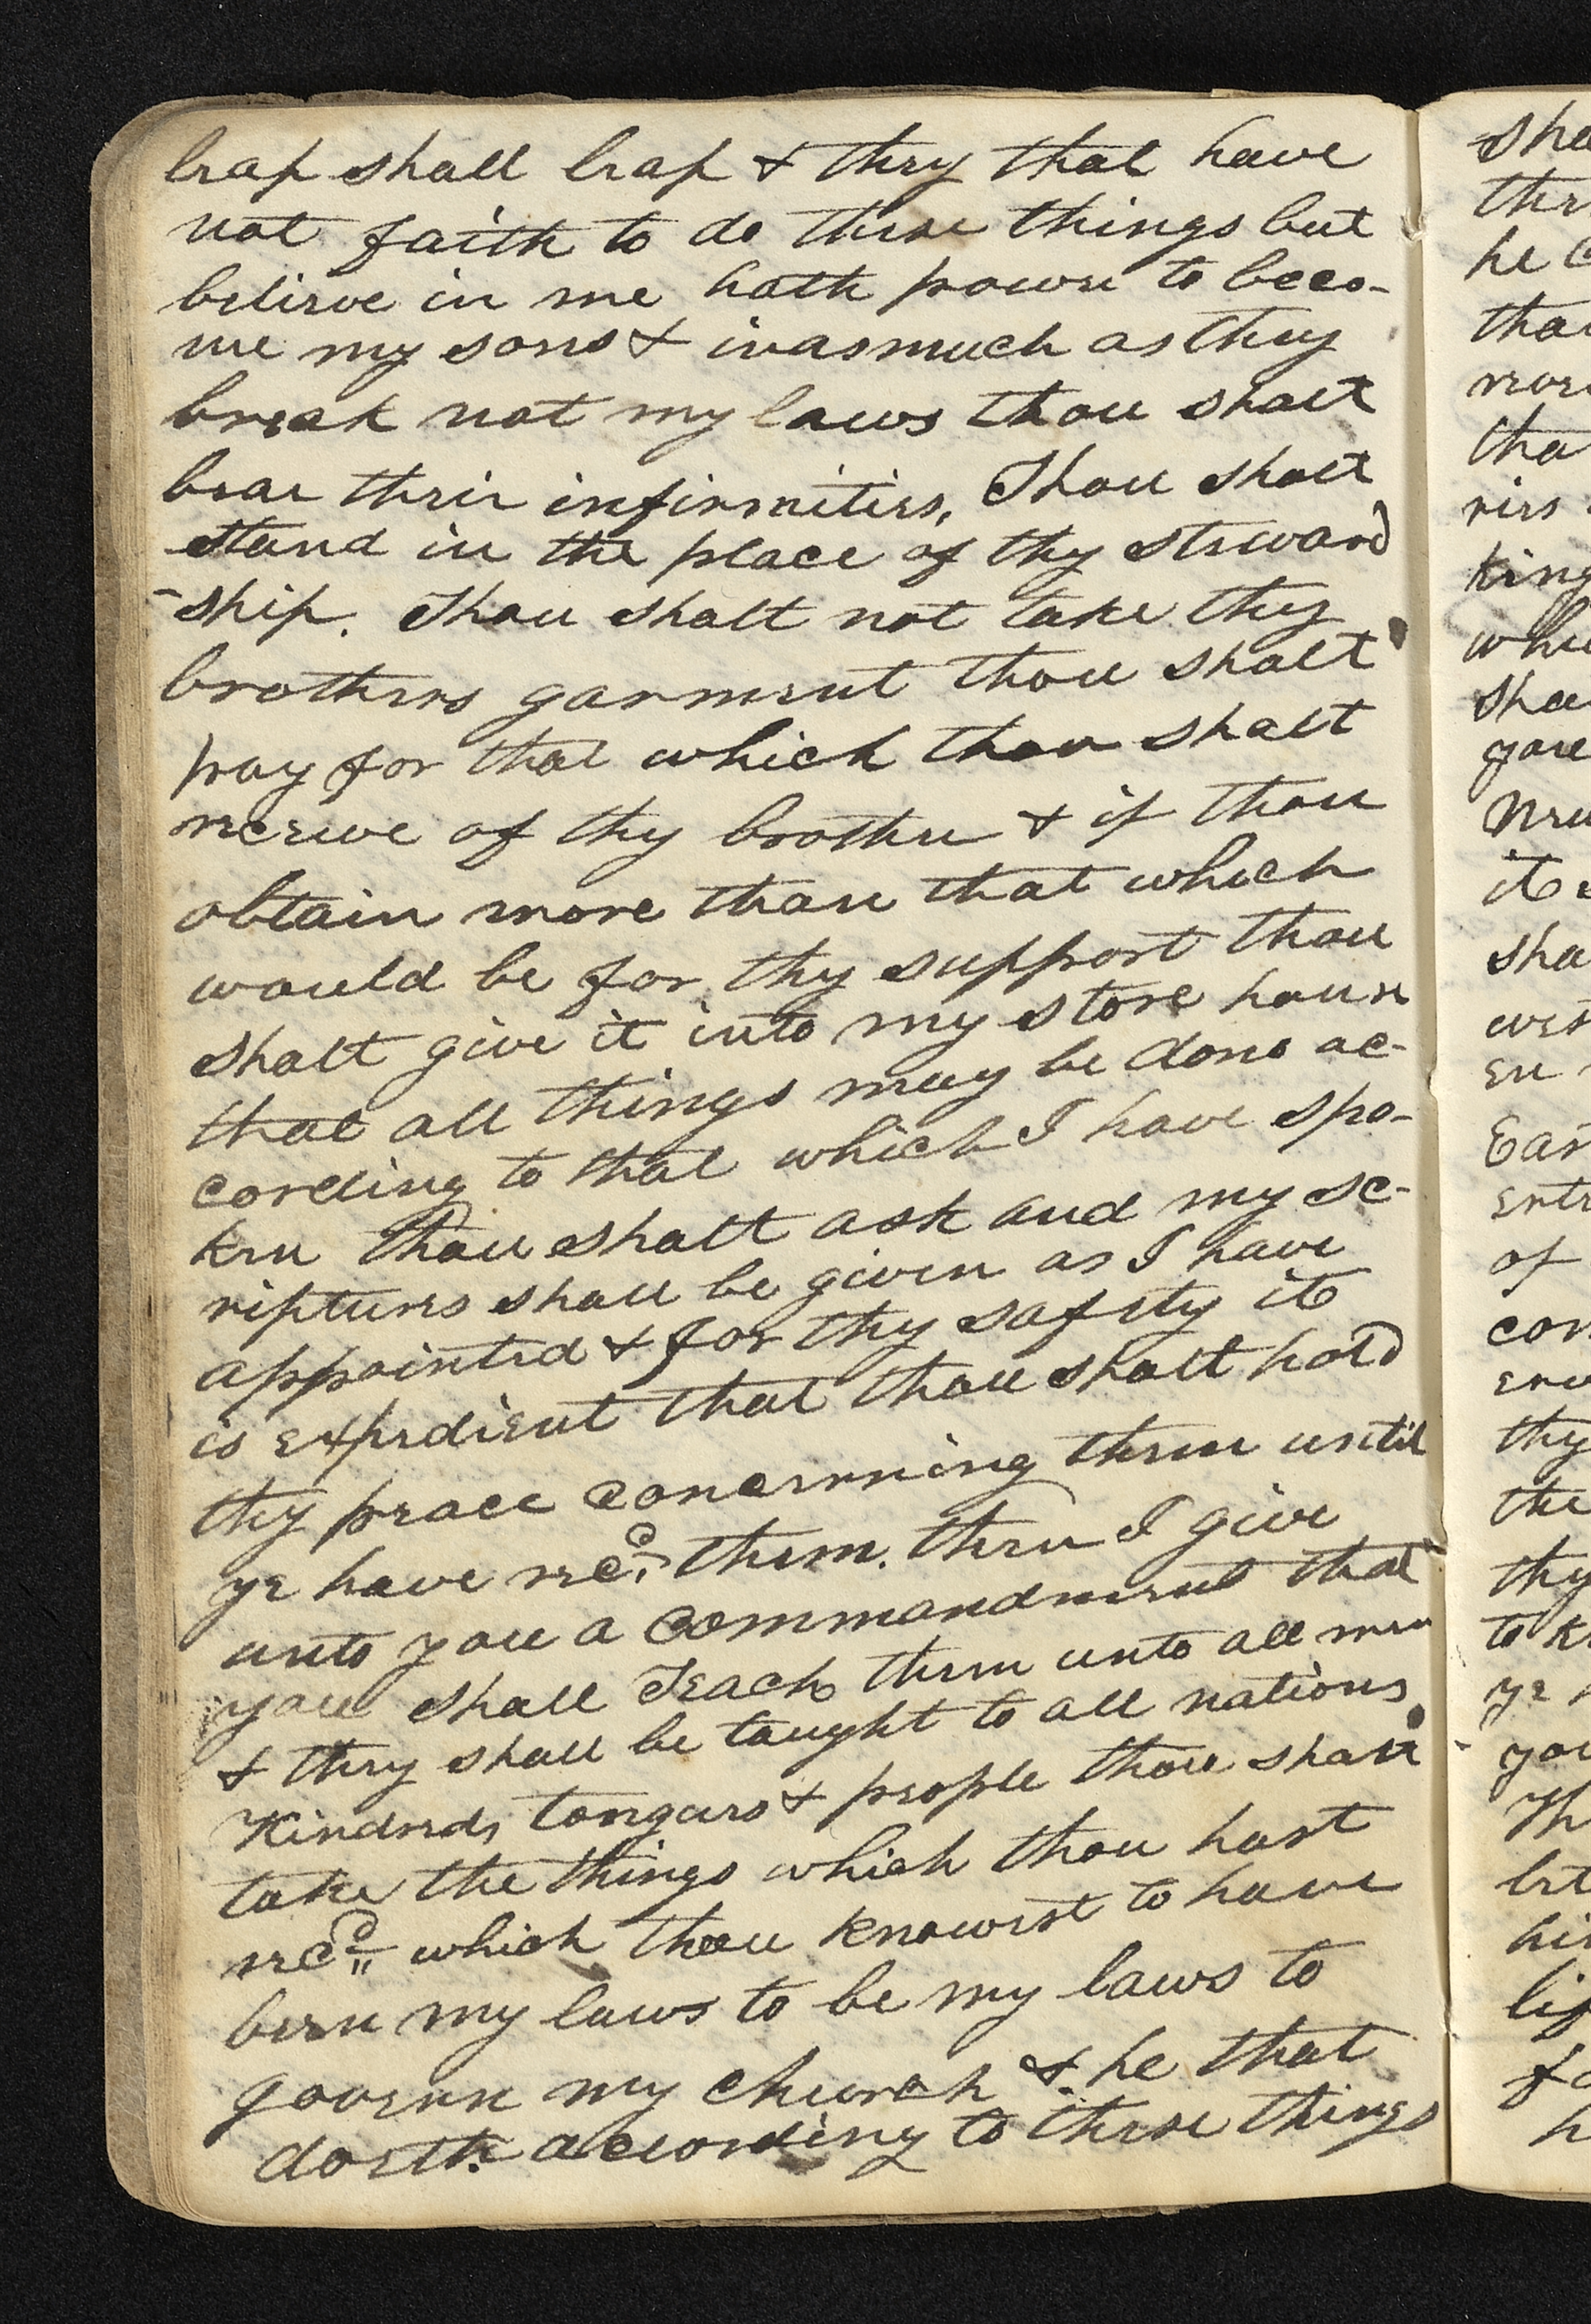 leap shall leap & they that have
not faith to do these things but
believe in me hath power to beco-
me my sons & inasmuch as they
break not my laws thou shalt
bear their infirmities, Thou shalt
stand in the place of thy steward
-ship. Thou shalt not take thy
brothers garment thou shalt
pay for that which thou shalt
receive of thy brother & if thou
obtain more than that which
would be for thy support thou
shalt give it into my store house
that all things may be done ac-
cording to that which I have spo-
ken thou shalt ask and my sc-
riptures shall be given as I have
appointed & for thy safety it
is expedient that thou shalt hold
thy peace concerning them until
ye have recd. them. then I give
unto you a commandment that
you shall Teach them unto all men
& they shall be taught to all nations
Kindreds tongues & people thou shalt
take the things which thou hast
recd. which thou knowest to have
been my laws to be my laws to
govern my church & he that
doeth according to these things
sha
the
he
tha
tha
King
whi
sha
it
sha
Ear
of
con
thy
the
thy
to k
ye
you
Th
let
hi
lif
fo
h